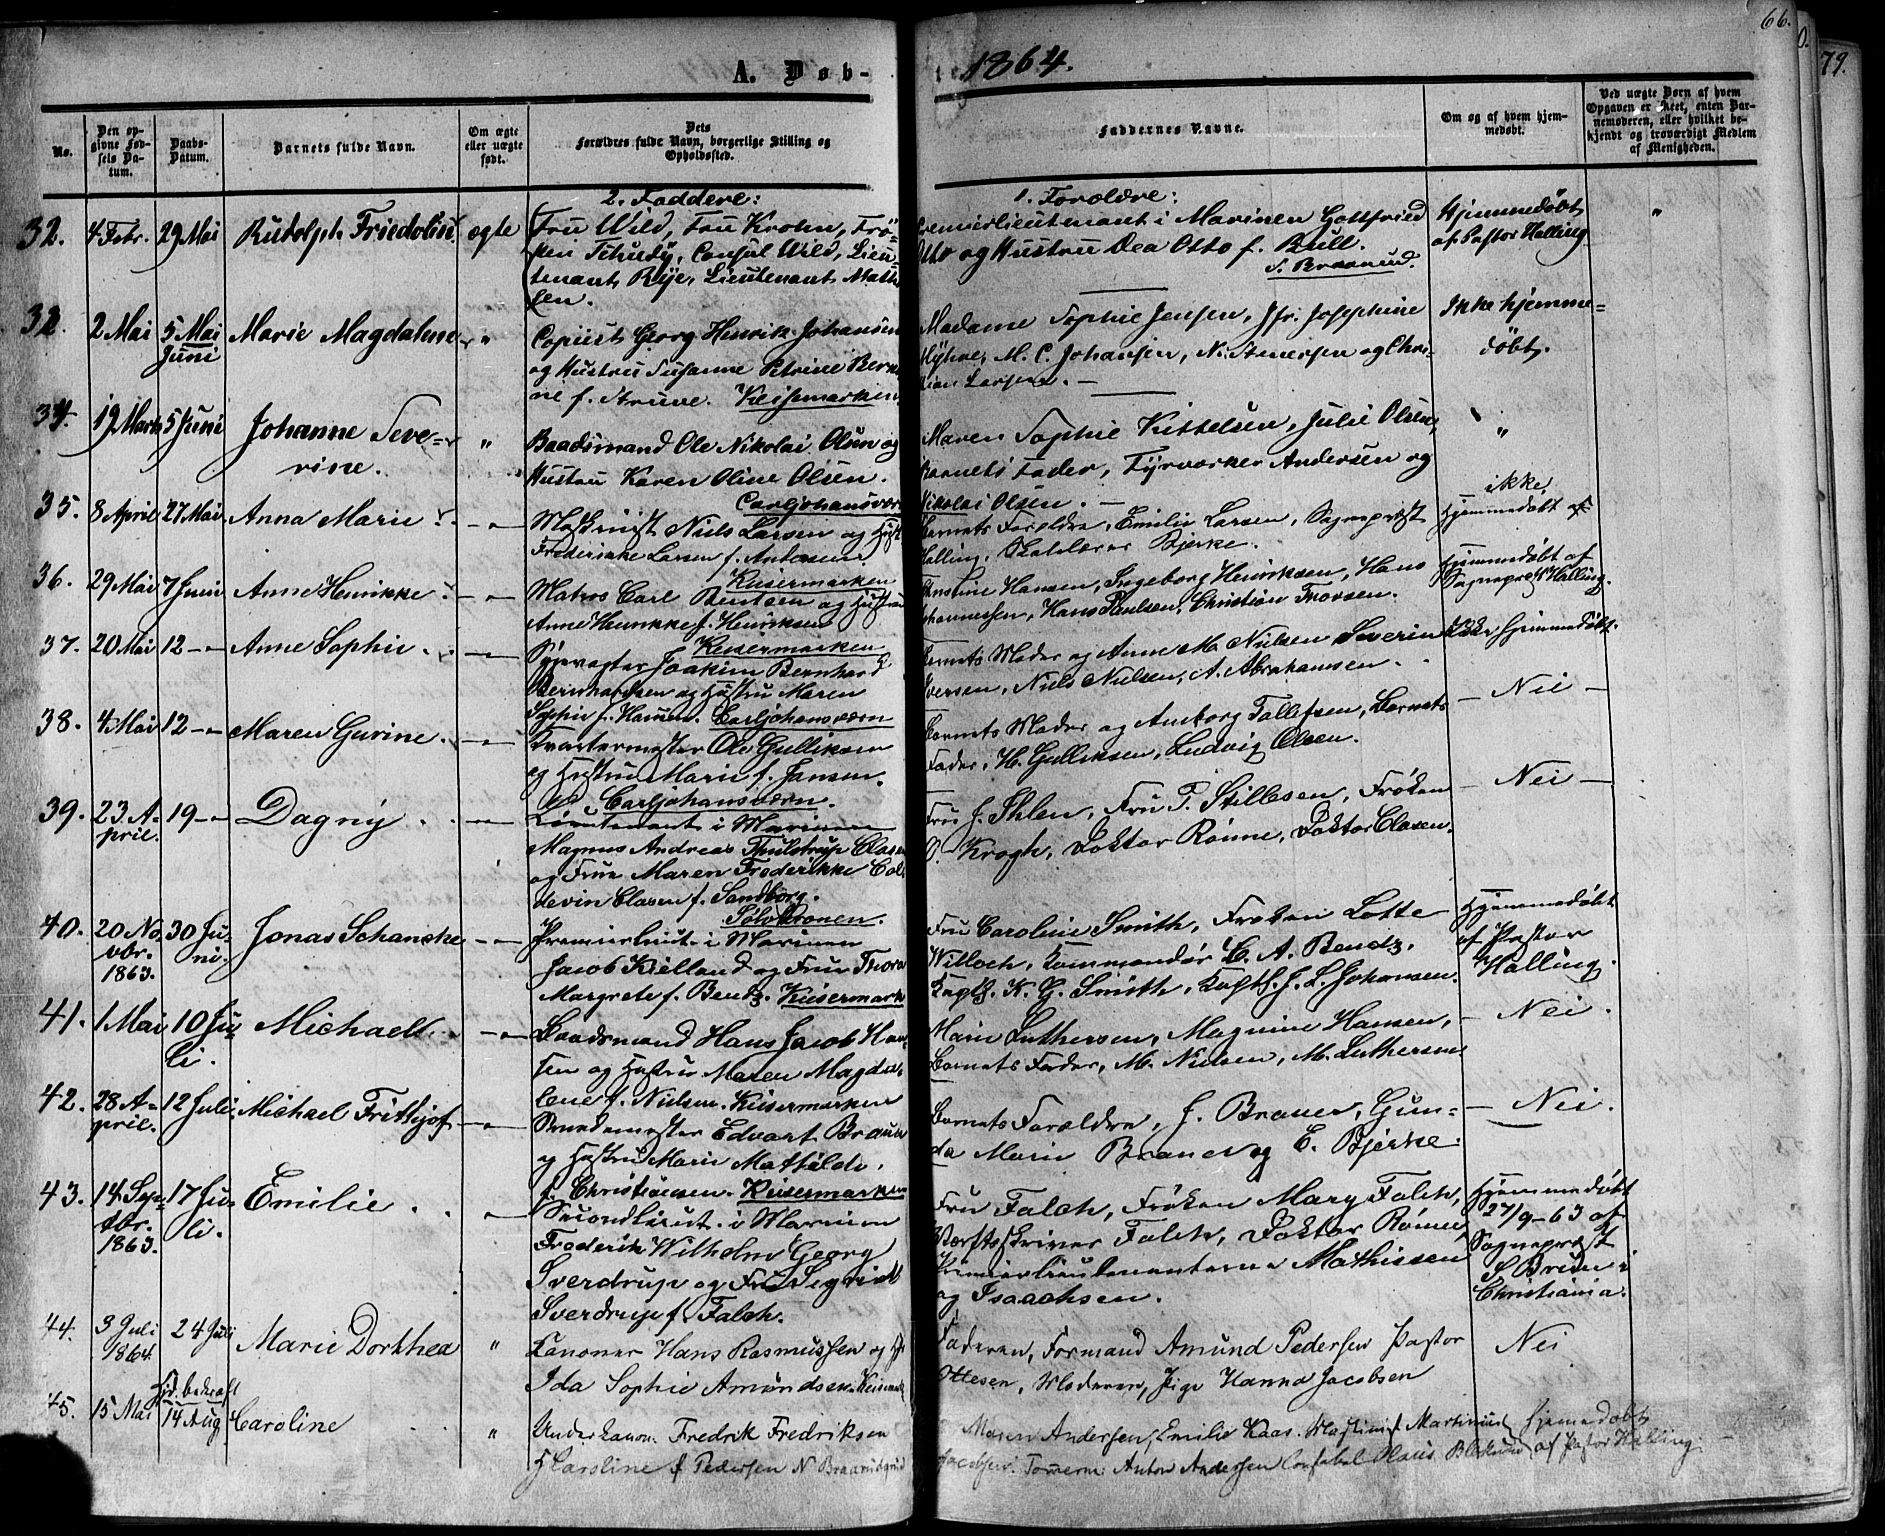 66.
79.
A. Døb-
1864.
No.
Den op-
givne Fød-
sels Da-
tum.
Daabs-
Datum.
Barnets fulde Navn.
Om ægte
eller uægte
født.
Dets
Forældres fulde Navn, borgerlige Stilling og
Opholdssted.
Faddernes Navne.
Om og af hvem hjem-
medøbt.
Ved uægte Børn af hvem
Opgaven er skeet, enten Bar-
nemoderen, eller hvilket be-
kjendt og troværdigt Medlem
af Menigheden.
2. Faddere:
1. Forældre:
32. 4 Febr. 29 Mai Rudolph Friedolin ægte
Fru Wild, Fru Krohn, Frø-
ken Tchudy, Consul Wild, Lieu-
tenant Rye, Lieutenant Math
sen.
Premierlieutenant i Marinen Gottfried
Otto og Hustru Dea Otto f. Bull.
S. Braarud.
Hjemmedøbt
af Pastor Halling
"
33. 2 Mai 5 Mai
Juni
Marie Magdalene "
Copiist Georg Henrik Johansen
og Hustru Susanne Petrine Bern
ne f. Struve. Keisemarken
Madame Sophie Jensen, Jfr. Josephine
Myhre, M. C. Johansen, N. Stenersen og Chri-
stian Larsen. —
Ikke hjemme-
døbt.
34. 19 Marts 5 Juni Johanne Seve-
rine. "
Baadsmand Ole Nikolai Olsen og
Hustru Karen Oline Olsen.
Carljohansværn
Maren Sophie Kittelsen, Julie Olsen,
Barnets Fader, Fyrværker Andersen og
Nikolai Olsen. —
"
35. 8 April 27 Mai Anna Marie — " —
Maskinist Niels Larsen og Hust
Frederikke Larsen f. Andersen.
Keisermarken
Barnets Forældre, Emilie Larsen, Sognepræst
Halling, Skolelærer Bjerke.
ikke
Hjemmedøbt
36. 29 Mai 7 Juni Anne Henrikke. — " —
Matros Carl Berntsen og Hustru
Anne Henrikke f. Henriksen
Keisermarken
Christine Hansen, Ingeborg Henriksen, Hans
Johannessen, Hans Paulsen, Christian Thorsen.
Hjemmedøbt af
Sognepræst Halling.
37. 20 Mai 12 — " Anne Sophie. — " —
Joakim Bernhard
Bernhardsen og Hustru Maren
Sophie f. Hansen. Carljohansværn
Barnets Moder og Anne M. Nielsen Severin
Iversen, Niels Nielsen, A. Abrahamsen.
Ikke hjemmedøbt.
38. 4 Mai 12 — " Maren Gurine. — " —
Kvartermester Ole Gulliksen
og Hustru Marie f. Jansen.
Carljohansværn.
Barnets Moder og Amborg Tollefsen, Barnets
Fader, H. Gulliksen, Ludvig Olsen.
— Nei —
39. 23 A-
pril. 19 — " Dagny. — " —
Lieutenant i Marinen
Magnus Andreas Thulstrup Clasen
og Frue Maren Frederikke Col-
devin Clasen f. Sandborg.
Sølvkronen.
Fru J. Ihlen, Fru P. Stillesen, Frøken
O. Krogh, Doktor Røme, Doktor Clasen.
— Nei —
40. 20 No-
vbr.
1863. 30 Ju-
ni. Jonas Schancke — " —
Premierlieut. i Marinen
Jacob Kielland og Frue Thora
Margrete f. Bendz. Keisermark
Fru Caroline Smith, Frøken Lotte
Willoch, Kommandør C. A. Bendz.
Kapt. K. G. Smith, Kapt. J. L. Johansen.
Hjemmedøbt
af Pastor
Halling.
41. 1 Mai 10 Ju-
li. Michael — " —
Baadsmand Hans Jacob Han-
sen og Hustru Maren Magda-
lene f. Nielsen. Keisermarken
Marie Luthersen, Magnine Hansen,
Barnets Fader, M. Nielsen, M. Luthersen
— Nei.
42. 28 A-
pril. 12 Juli Michael Frithjof — " —
Edvart Brauer
og Hustru Marie Mathilde
f. Christiansen. Keisermarken
Barnets Forældre, J. Brauer, Gun-
da Marie Brauer og E. Bjerke.
— Nei.
43. 14 Sep-
tbr.
1863. 17 Ju-
li. Emilie. — " —
Secondlieut. i Marinen
Frederik Wilhelm Georg
Sverdrup og Fru Sigrid
Sverdrup f. Falch.
Fru Falch, Frøken Mary Falch,
Værftsskriver Falch, Doktor Rømer
Premierlieutenanterne Mathissen
og Isaachsen.
Hjemmedøbt
27/9-63 af
Sognepræst
S. Bruun i
Christiania.
44. 3 Juli
1864. 24 Juli Marie Dorthea "
Kanoner Hans Rasmussen og H
Ida Sophie Amundsen. Keisemark
Faderen, Formand Amund Pedersen Pastor
Ottesen, Moderen, Pige Hanna Jacobsen
Nei
45. 15 Mai bekræft
14 Aug Caroline "
Underkanon. Fredrik Fredriksen
H Caroline f Pedersen N Braarudgrind
Maren Andersen, Emilie Kaas. Maskinist Martinus
Jacobsen. Tømmerm. Anton Andersen Constabel Olaus
Hjemmedøbt
af Pastor Halling